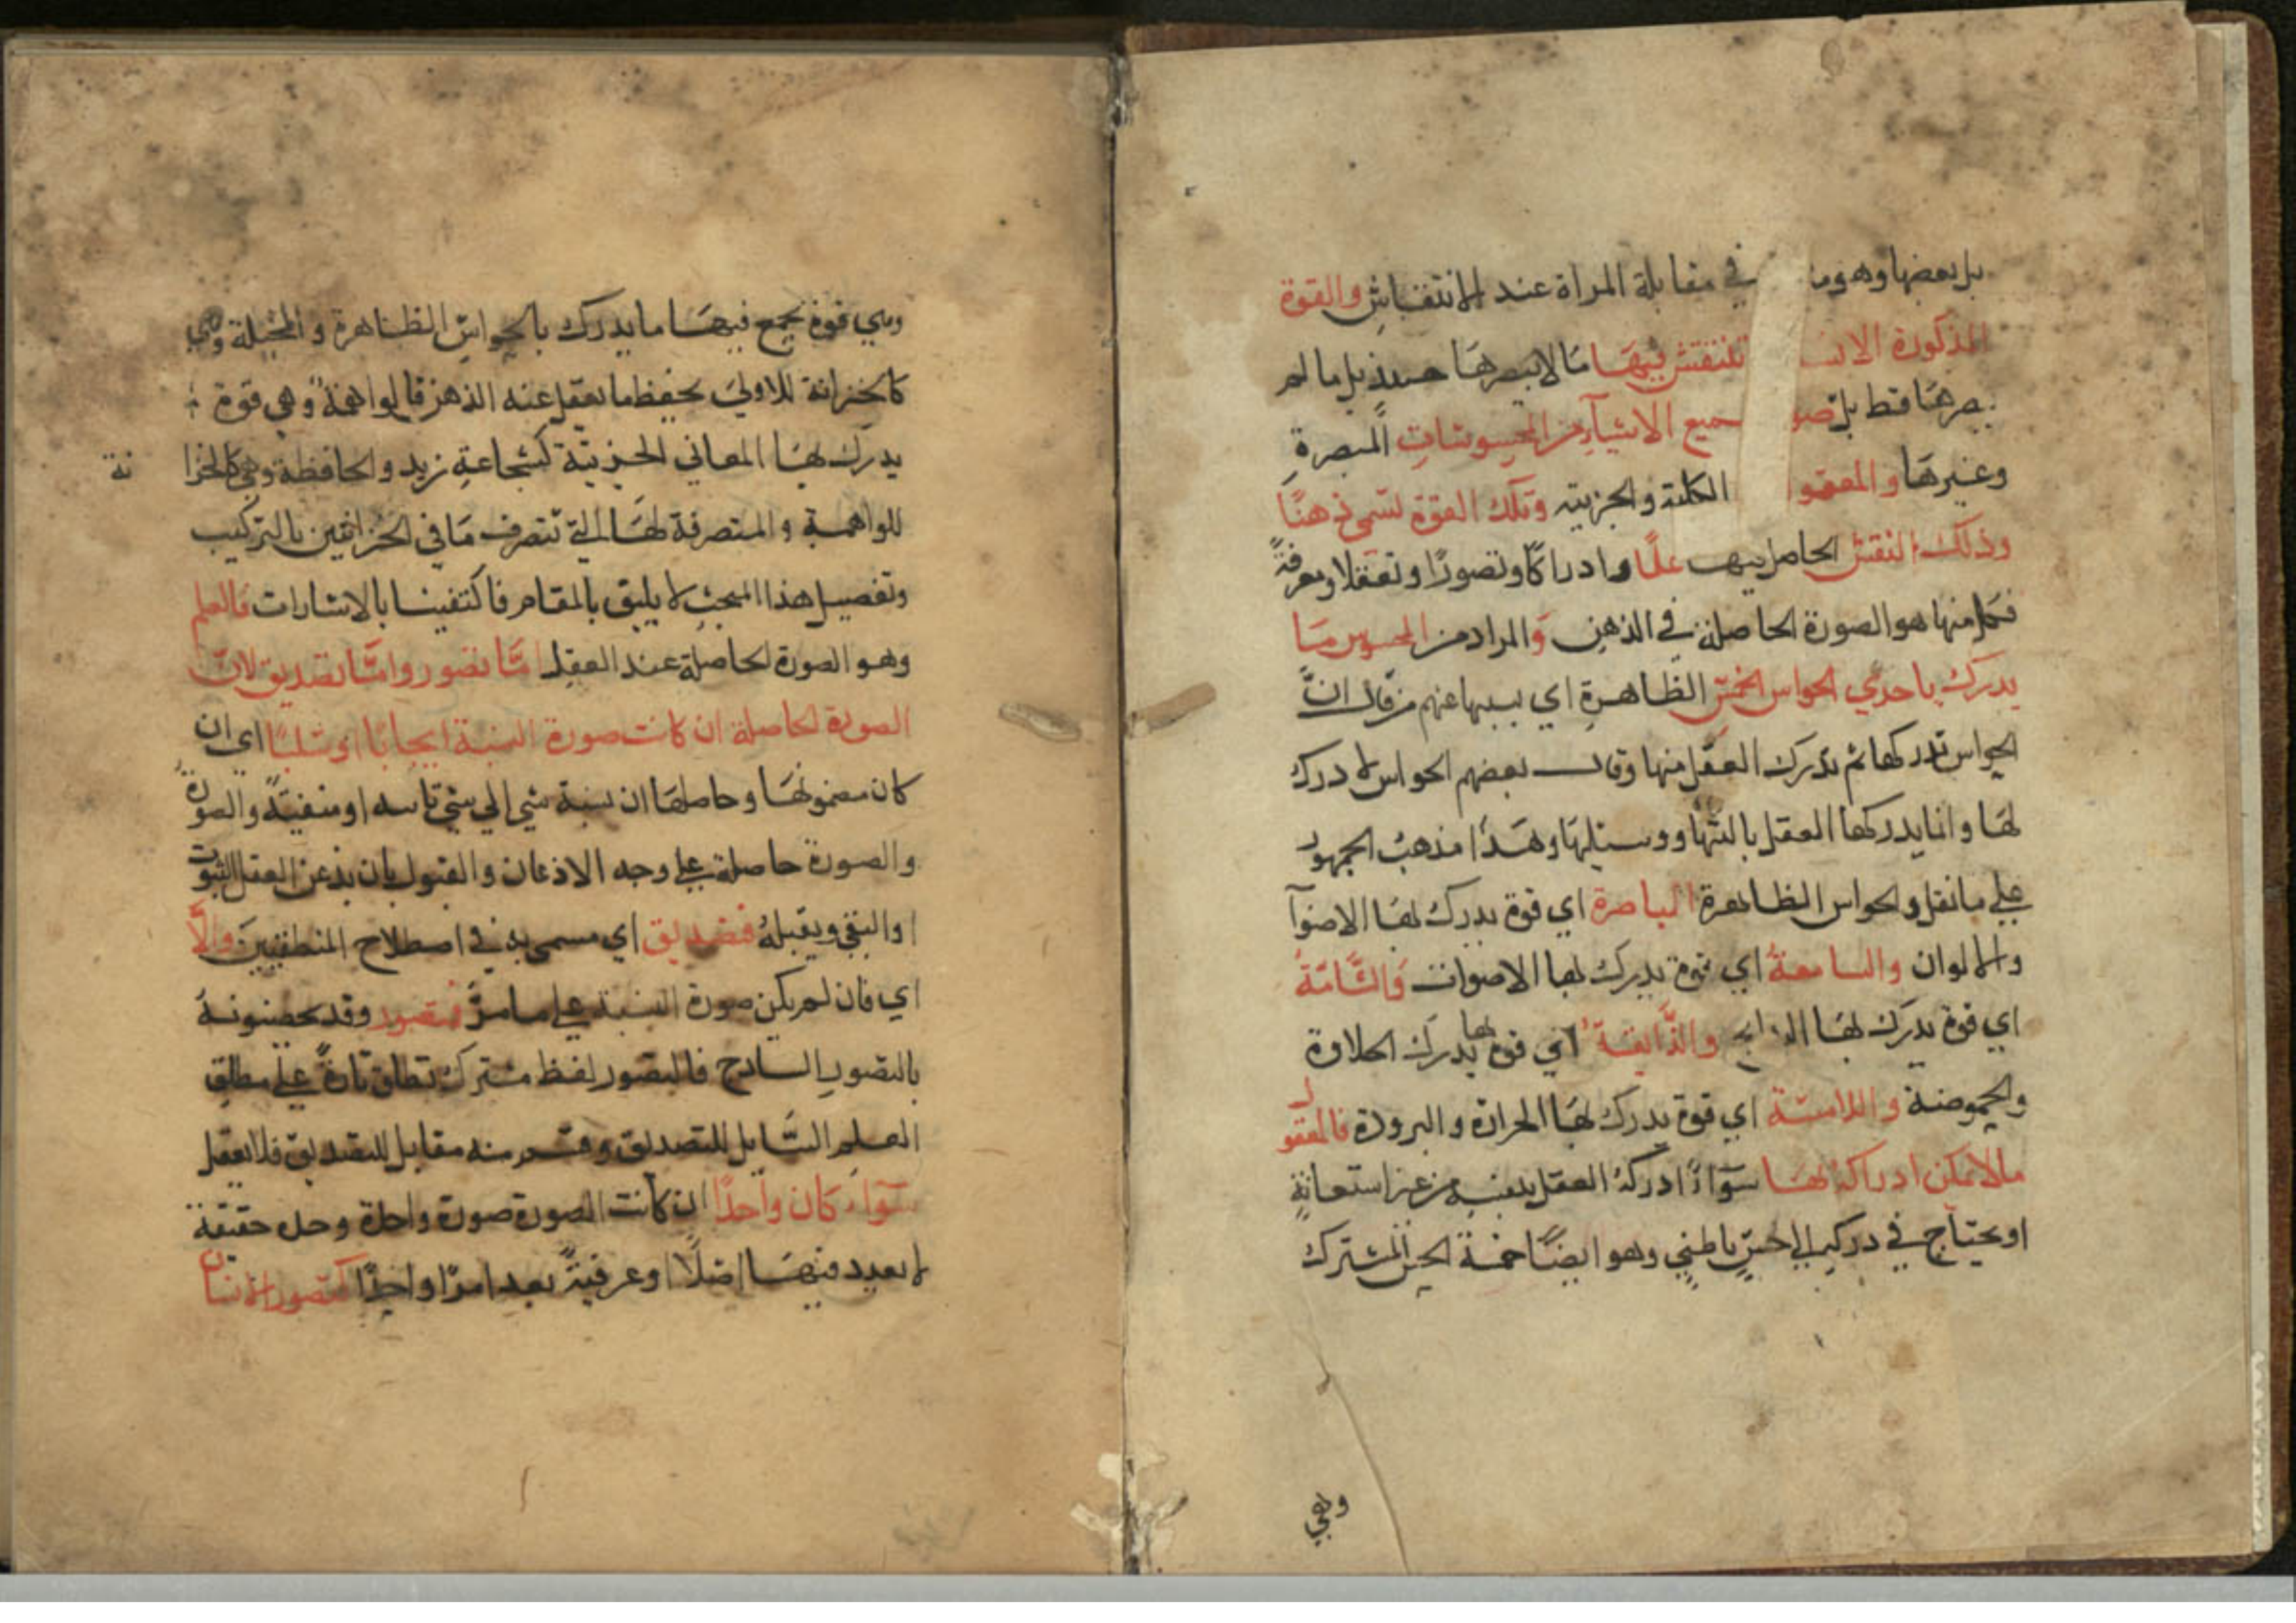 بل بعضها وهو ما في مقابلة المرأة عند الانتقاش والقوة
المذكورة تنتقش فيها ما لا يبصرها حينئذ بل ما لم
يبصرها قط بل صو جميع الاشياء من المحسوسات المبصرة
وغيرها والمعقو الكلية والجزيية وتلك القوة تسمى ذهنًا
وذلك النقش الحاصل فيها علمًا وادراكًا وتصورًا وتعقلا ومعرفةً
فكل منها هو الصورة الحاصلة في الذهن والمراد من المحسوس ما
يدرك باحدي الحواس الخمس الظاهرة اي بسببها عنهم من قال انَّ
الحواس تدركها ثم تدرك العقل منها وقال بعضهم الحواس لا درك
لها وانما يدركها العقل بالتها ووسيلتها وهذا مذهب الجمهور
علي ما نقل والحواس الظاهرة الباصرة اي قوة يدرك لها الاضوآ
والالوان والسامعة اي قوة يدرك لها الاصوات والشَّامّة
اي قوة يدرك لها الروايح والذَّايقة اي قوة يدرك لها الحلاوة
والحموضة واللامسة اي قوة يدرك لها الحرارة والبرودة فالمعقول
ما لا يمكن ادراكه لها سوآءً ادركه العقل بنفسه من غير استعانةٍ
او يحتاج في دركه الي حسٍّ باطني وهو ايضًا خمسة الحس المشترك
وهي
وهي قوة تجمع فيها ما يدرك بالحواسّ الظاهرة والمخيلة وهي
كالخزانة للاولي يحفظ ما يغفل عنه الذهن قالواهمة وهي قوة
يدرك لها المعاني الجزييّة كشجاعةِ زيد والحافظة وهي كالخزا نة
للواهمة والمتصرفة لها التي تتصرف ما في الخزانتين بالتركيب
وتفصيل هذا المبحث لا يليق بالمقام فاكتفينا بالاشارات فالعلم
وهو الصورة الحاصلة عند العقل امّا تصور وامّا تصديق لانّ
الصورة الحاصلة ان كانت صورة النسبة ايجابًا او سلبًا اي ان
كان مضمونها وحاصلها ان نسبة شي الي شي ثابتة او منفيّةً والصورةُ
والصورة حاصلة علي وجه الاذعان والقبول بان يذعن العقل الثبوت
او النفي ويقبله فتصديق اي مسمى به في اصطلاح المنطقيين والّا
اي فان لم يكن صورة النسبة علي ما مرّ فتصور وقد يخصّونه
بالتصور الساذج فالتصور لفظ مشترك تطلق تارةً علي مطلق
العلم الشَّامل للتصديق وقسم منه مقابل للتصديق فلا تغفل
سوآء كان واحدًا ان كانت الصورة صورة واحدة وحده حقيقة
لا تعدد فيها اصلًا او عرفيةً يعد امرًا واحدًا كتصور الانسان